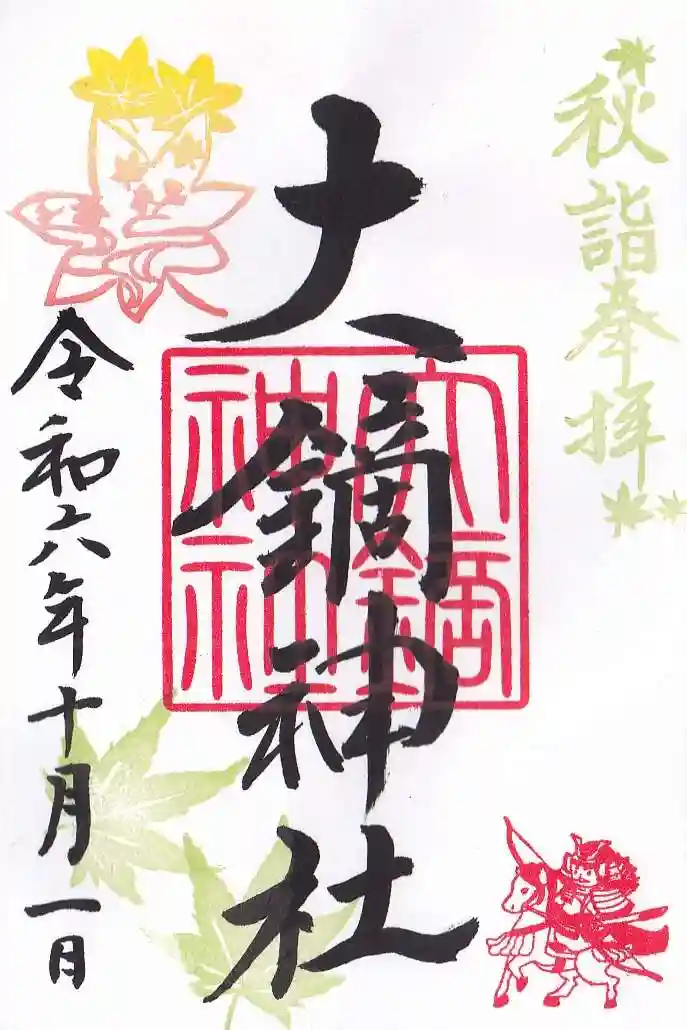 秋詣奉拝
大鏑神社
大鏑神社
令和六年十月一日